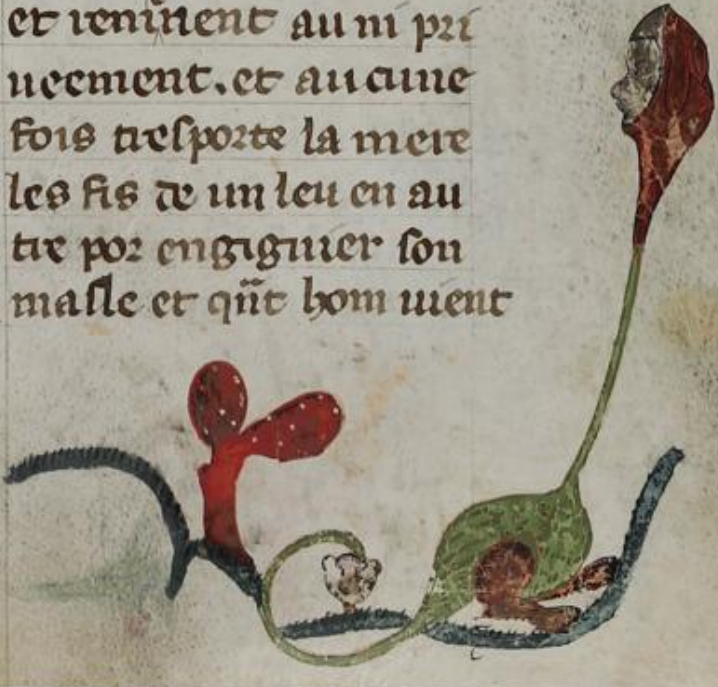 et reuiñent au ni pri
ueement. et aucune
fois tresporte la mere
les fis de un leu en au
tre por engignier son
masle et qñt hom uient